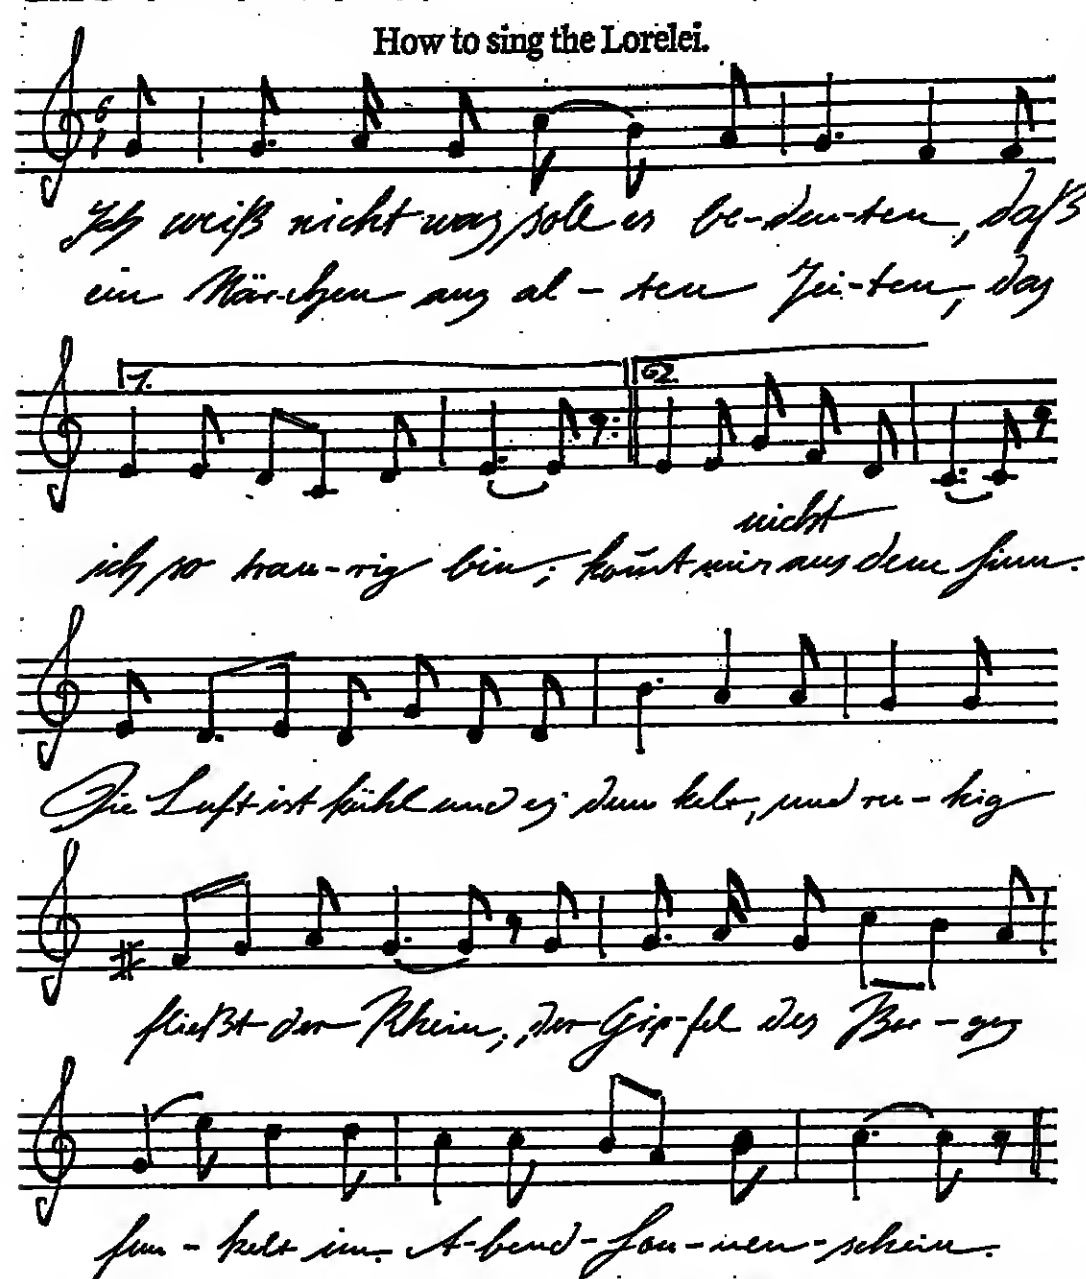 How to sing the Lorelei.
6
8
Ich weiß nicht was soll es be-deu-ten, daß
ein Mär-chen aus al-ten Zei-ten, das
1. 2.
nicht
ich so trau-rig bin; kom̄t mir aus dem Sinn.
Die Luft ist kühl und es dunkelt, und ru-hig
fließt der Rhein, der Gip-fel des Ber-ges
fun-kelt im A-bend-son-nen-schein.